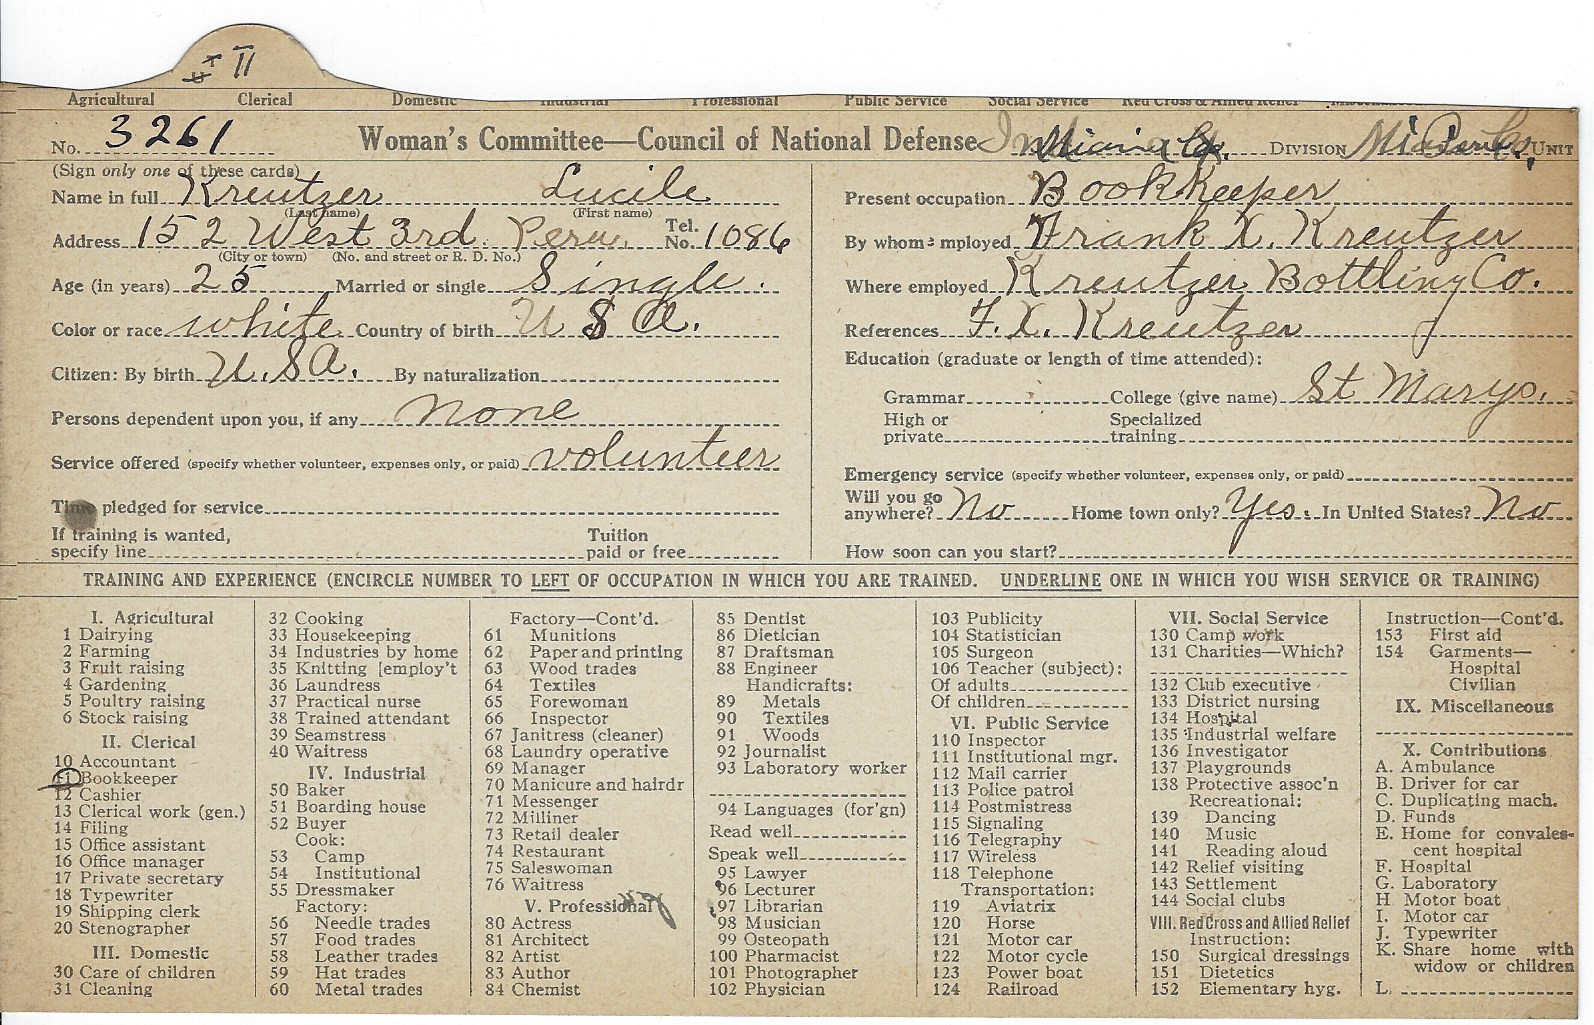 # II
Agricultural Clerical Domestic Industrial Professional Public Service Social Service Red Cross & Allied Relief
No. 3261 Woman's Committee—Council of National Defense Miami Co. DIVISION Peru UNIT
(Sign only one of these cards)
Name in full Kreutzer Lucile
(Last name) (First name)
Address 152 West 3rd. Peru. Tel. No. 1086
(City or town) (No. and street or R. D. No.)
Age (in years) 25 Married or single Single.
Color or race white Country of birth U S A.
Citizen: By birth U.S.A. By naturalization
Persons dependent upon you, if any none
Service offered (specify whether volunteer, expenses only, or paid) volunteer
Time pledged for service
If training is wanted, specify line Tuition paid or free
Present occupation Bookkeeper
By whom employed Frank X. Kreutzer
Where employed Kreutzer Bottling Co.
References F. X. Kreutzer
Education (graduate or length of time attended):
Grammar College (give name) St Marys.
High or private Specialized training
Emergency service (specify whether volunteer, expenses only, or paid)
Will you go anywhere? No Home town only? Yes. In United States? No
How soon can you start?
TRAINING AND EXPERIENCE (ENCIRCLE NUMBER TO LEFT OF OCCUPATION IN WHICH YOU ARE TRAINED. UNDERLINE ONE IN WHICH YOU WISH SERVICE OR TRAINING)
I. Agricultural
1 Dairying
2 Farming
3 Fruit raising
4 Gardening
5 Poultry raising
6 Stock raising
II. Clerical
10 Accountant
11 Bookkeeper
12 Cashier
13 Clerical work (gen.)
14 Filing
15 Office assistant
16 Office manager
17 Private secretary
18 Typewriter
19 Shipping clerk
20 Stenographer
III. Domestic
30 Care of children
31 Cleaning
32 Cooking
33 Housekeeping
34 Industries by home
35 Knitting [employ't
36 Laundress
37 Practical nurse
38 Trained attendant
39 Seamstress
40 Waitress
IV. Industrial
50 Baker
51 Boarding house
52 Buyer
Cook:
53 Camp
54 Institutional
55 Dressmaker
Factory:
56 Needle trades
57 Food trades
58 Leather trades
59 Hat trades
60 Metal trades
Factory—Cont'd.
61 Munitions
62 Paper and printing
63 Wood trades
64 Textiles
65 Forewoman
66 Inspector
67 Janitress (cleaner)
68 Laundry operative
69 Manager
70 Manicure and hairdr
71 Messenger
72 Milliner
73 Retail dealer
74 Restaurant
75 Saleswoman
76 Waitress
V. Professional
80 Actress
81 Architect
82 Artist
83 Author
84 Chemist
85 Dentist
86 Dietician
87 Draftsman
88 Engineer
Handicrafts:
89 Metals
90 Textiles
91 Woods
92 Journalist
93 Laboratory worker
94 Languages (for'gn)
Read well
Speak well
95 Lawyer
96 Lecturer
97 Librarian
98 Musician
99 Osteopath
100 Pharmacist
101 Photographer
102 Physician
103 Publicity
104 Statistician
105 Surgeon
106 Teacher (subject):
Of adults
Of children
VI. Public Service
110 Inspector
111 Institutional mgr.
112 Mail carrier
113 Police patrol
114 Postmistress
115 Signaling
116 Telegraphy
117 Wireless
118 Telephone
Transportation:
119 Aviatrix
120 Horse
121 Motor car
122 Motor cycle
123 Power boat
124 Railroad
VII. Social Service
130 Camp work
131 Charities—Which?
132 Club executive
133 District nursing
134 Hospital
135 Industrial welfare
136 Investigator
137 Playgrounds
138 Protective assoc'n
Recreational:
139 Dancing
140 Music
141 Reading aloud
142 Relief visiting
143 Settlement
144 Social clubs
VIII. Red Cross and Allied Relief
Instruction:
150 Surgical dressings
151 Dietetics
152 Elementary hyg.
Instruction—Cont'd.
153 First aid
154 Garments—
Hospital
Civilian
IX. Miscellaneous
X. Contributions
A. Ambulance
B. Driver for car
C. Duplicating mach.
D. Funds
E. Home for convales-
cent hospital
F. Hospital
G. Laboratory
H Motor boat
I. Motor car
J. Typewriter
K. Share home with
widow or children
L.